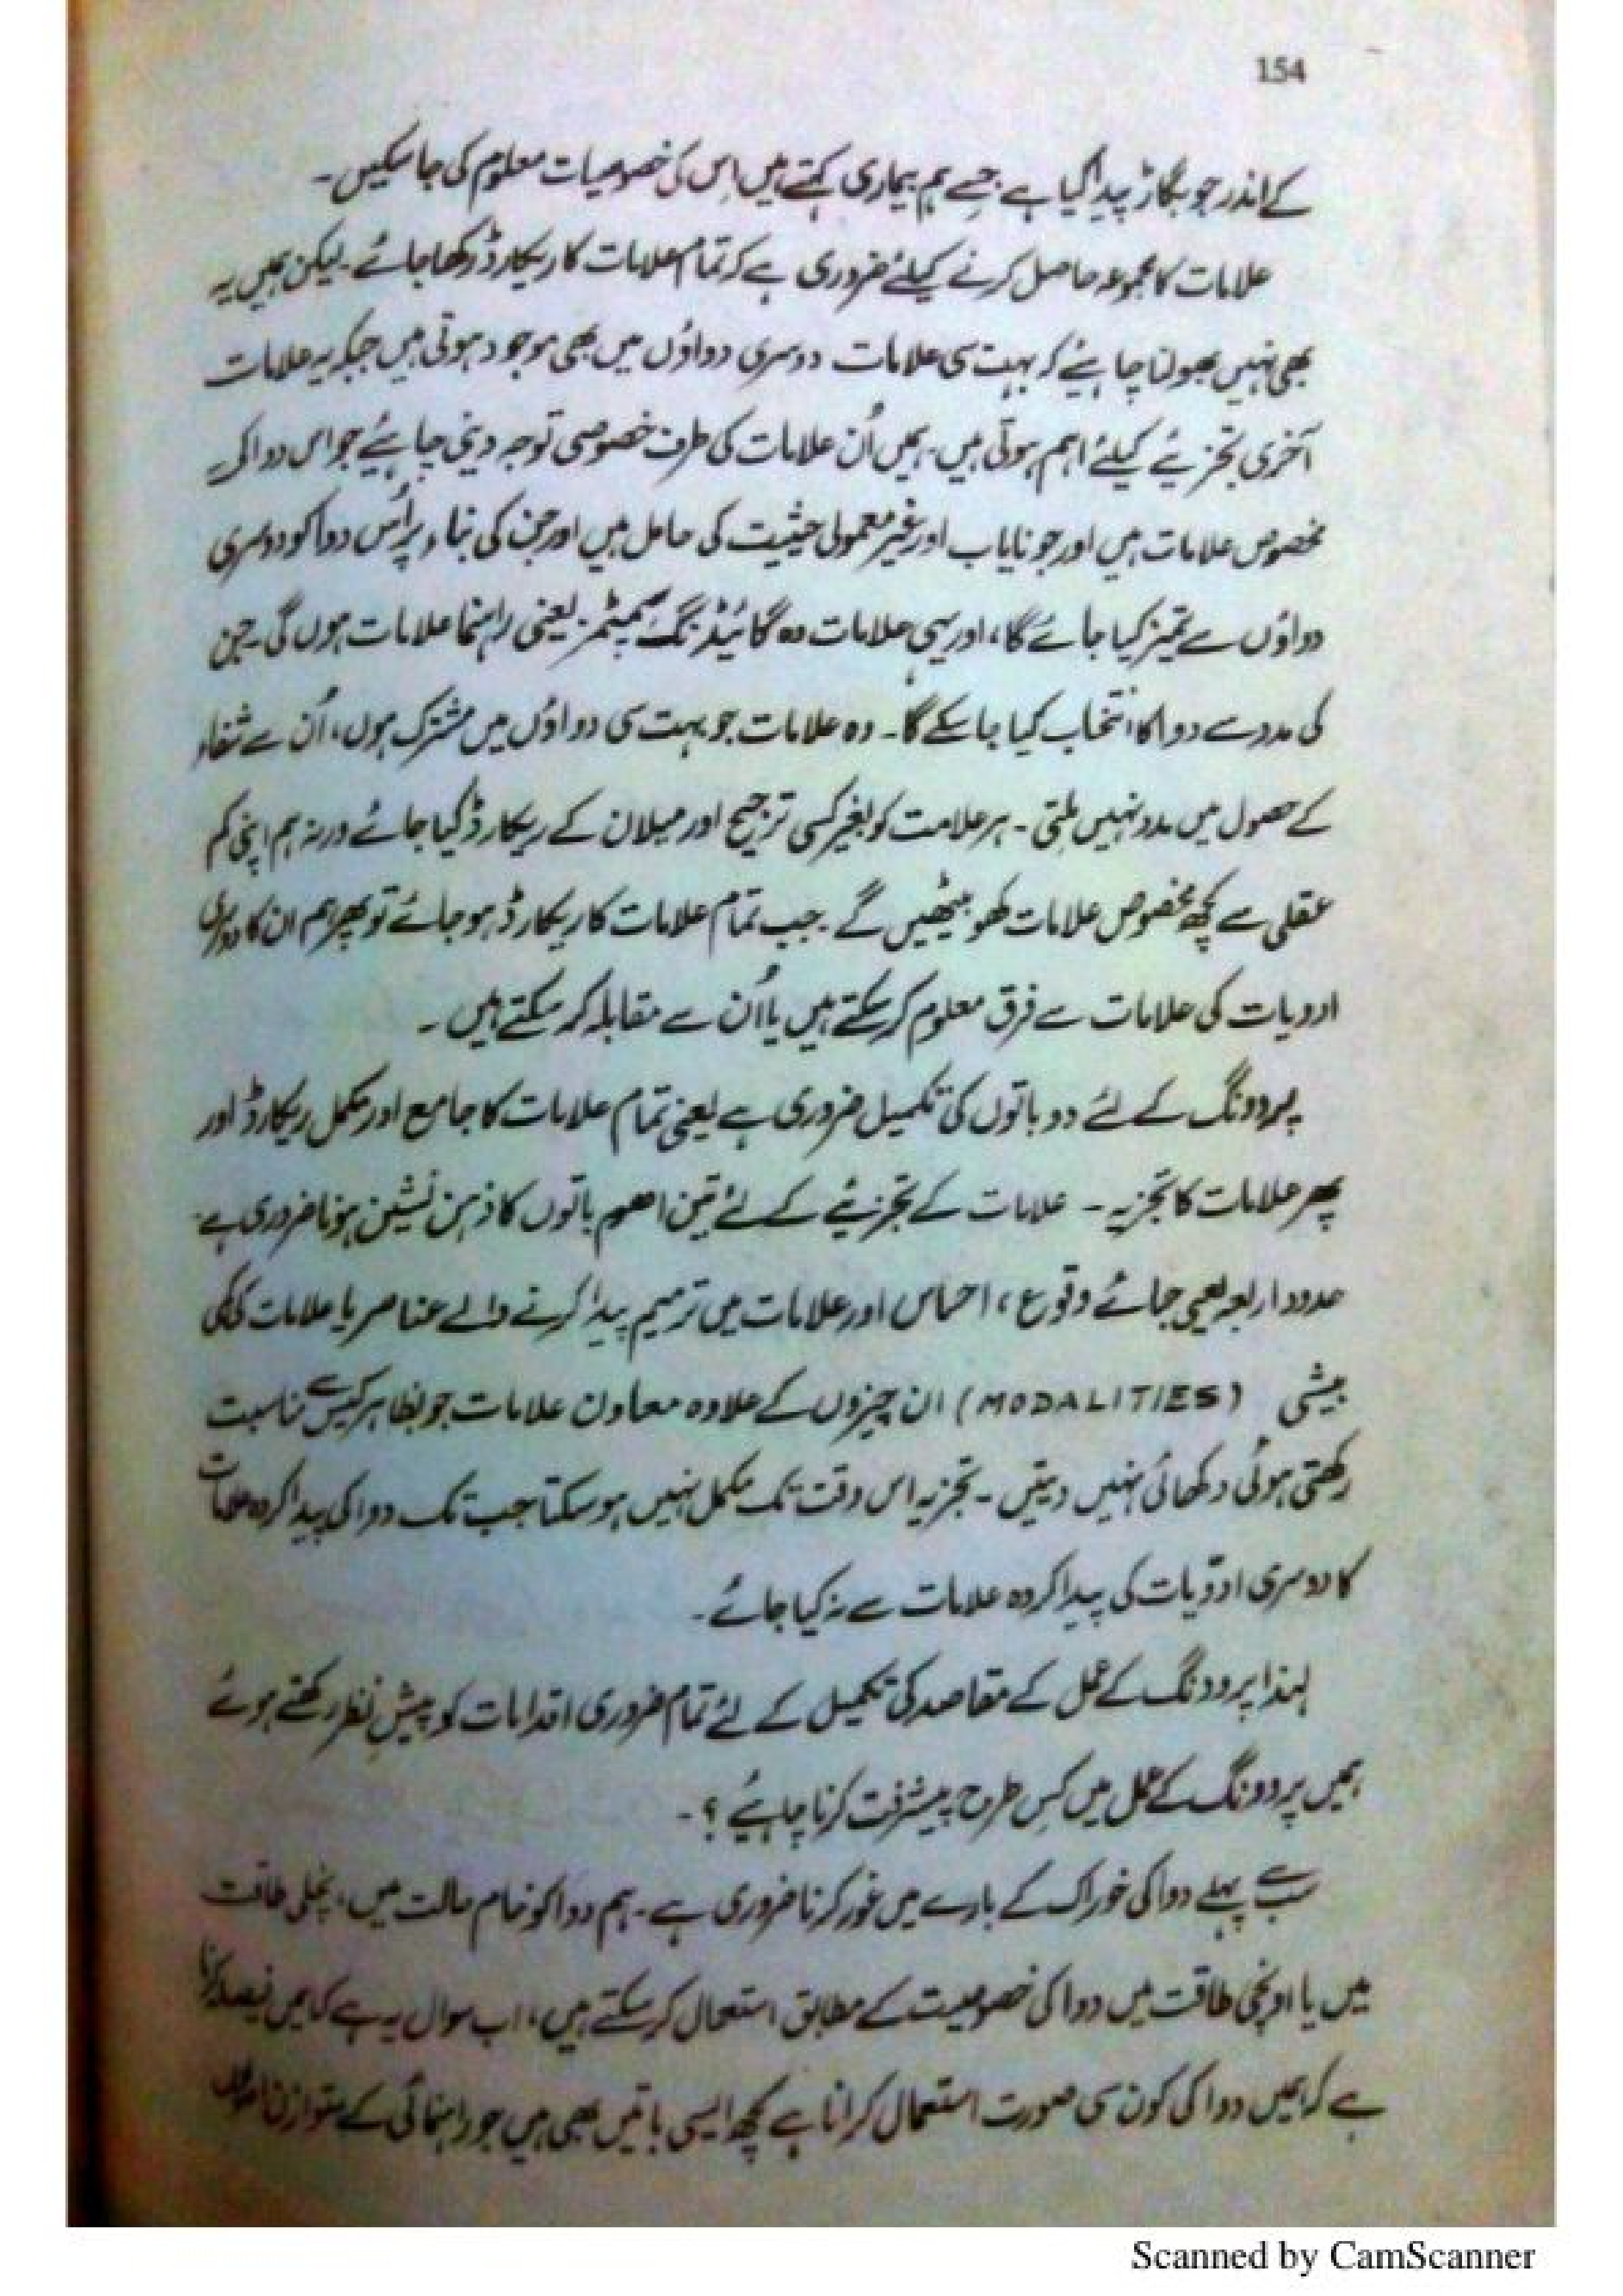 154
کے اندر جو بگاڑ پیدا کیا ہے جسے ہم بیماری کہتے ہیں اِس کی خصوصیات معلوم کی جا سکیں۔
علامات کا مجموعہ حاصل کرنے کیلئے ضروری ہے کہ تمام علامات کا ریکارڈ رکھا جائے۔ لیکن ہمیں یہ
بھی نہیں بھولنا چاہیئے کہ بہت سی علامات دوسری دواؤں میں بھی موجود ہوتی ہیں جبکہ یہ علامات
آخری تجزیئے کیلئے اہم ہوتی ہیں۔ ہمیں اُن علامات کی طرف خصوصی توجہ دینی چاہیئے جو اس دوا کی
مخصوص علامات ہیں اور جو نایاب اور غیر معمولی حیثیت کی حامل ہیں اور جن کی بناء پر اُس دوا کو دوسری
دواؤں سے تمیز کیا جائے گا، اور یہی علامات وہ گائیڈنگ سمپٹمز یعنی راہنما علامات ہوں گی۔ جن
کی مدد سے دوا کا انتخاب کیا جا سکے گا۔ وہ علامات جو بہت سی دواؤں میں مشترک ہوں، اُن سے شفاء
کے حصول میں مدد نہیں ملتی۔ ہر علامت کو بغیر کسی ترجیح اور میلان کے ریکارڈ کیا جائے ورنہ ہم اپنی کم
عقلی سے کچھ مخصوص علامات کھو بیٹھیں گے۔ جب تمام علامات کا ریکارڈ ہو جائے تو پھر ہم ان کا دوسری
ادویات کی علامات سے فرق معلوم کر سکتے ہیں یا اُن سے مقابلہ کر سکتے ہیں۔
پرووِنگ کے لئے دو باتوں کی تکمیل ضروری ہے یعنی تمام علامات کا جامع اور مکمل ریکارڈ اور
پھر علامات کا تجزیہ۔ علامات کے تجزیئے کے لئے تین اھم باتوں کا ذہن نشین ہونا ضروری ہے۔
حدود اربعہ یعنی جائے وقوع، احساس اور علامات میں ترمیم پیدا کرنے والے عناصر یا علامات کی کمی
بیشی (MODALITIES) ان چیزوں کے علاوہ معاون علامات جو بظاہر کیس سے مناسبت
رکھتی ہوئی دکھائی نہیں دیتیں۔ تجزیہ اس وقت تک مکمل نہیں ہو سکتا جب تک دوا کی پیدا کردہ علامات
کا دوسری ادویات کی پیدا کردہ علامات سے نہ کیا جائے۔
لہٰذا پرووِنگ کے عمل کے مقاصد کی تکمیل کے لئے تمام ضروری اقدامات کو پیشِ نظر رکھتے ہوئے
ہمیں پرووِنگ کے عمل میں کس طرح پیشرفت کرنا چاہیئے؟۔
سب سے پہلے دوا کی خوراک کے بارے میں غور کرنا ضروری ہے۔ ہم دوا کو خام حالت میں، نچلی طاقت
میں یا اونچی طاقت میں دوا کی خصوصیت کے مطابق استعمال کر سکتے ہیں، اب سوال یہ ہے کہ ہمیں فیصلہ کرنا
ہے کہ ہمیں دوا کی کون سی صورت استعمال کرانا ہے کچھ ایسی باتیں بھی ہیں جو راہنمائی کے متوازن
Scanned by CamScanner